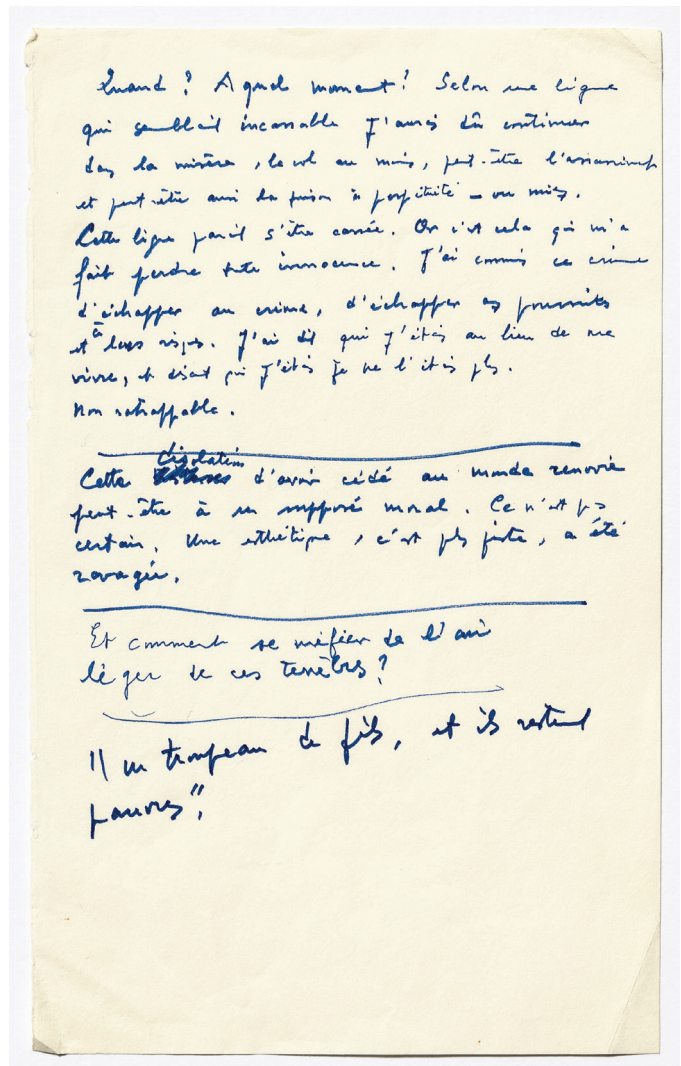 Quand ? A quel moment ? Selon une ligne
qui semblait incassable j'aurais dû continuer
dans la misère, le vol au moins, peut-être l'assassinat
et peut-être aussi la prison à perpétuité – ou mieux.
Cette ligne paraît s'être cassée. Or c'est cela qui m'a
fait perdre toute innocence. J'ai commis ce crime
d'échapper au crime, d'échapper aux poursuites
et à leurs risques. J'ai dit qui j'étais au lieu de me
vivre, et disant qui j'étais je ne l'étais plus.
Non rattrapable.
Cette désolation d'avoir cédé au monde renvoie
peut-être à un supposé moral. Ce n'est pas
certain. Une esthétique, c'est plus juste, a été
ravagée.
Et comment se méfier de l'air
léger de ces ténèbres ?
"un troupeau de fils, et ils restent
pauvres".